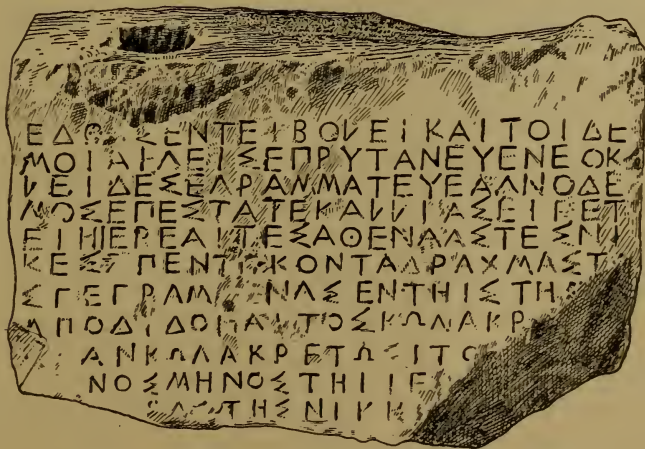 ΕΔΟΧΣΕΝΤΕΙΒΟΛΕΙΚΑΙΤΟΙΔΕ
ΜΟΙΑΙΓΕΙΣΕΠΡΥΤΑΝΕΥΕΝΕΟΚ
ΛΕΙΔΕΣΕΓΡΑΜΜΑΤΕΥΕΑΓΝΟΔΕ
ΜΟΣΕΠΕΣΤΑΤΕΚΑΛΛΙΑΣΕΙΠΕΤ
ΕΙΗΙΕΡΕΑΙΤΕΣΑΘΕΝΑΙΑΣΤΕΣΝΙ
ΚΕΣΠΕΝΤΕΚΟΝΤΑΔΡΑΧΜΑΣΤ
ΣΓΕΓΡΑΜΜΕΝΑΣΕΝΤΗΙΣΤΗ
ΑΠΟΔΙΔΟΝΑΙΤΟΣΚΩΛΑΚΡ
ΑΝΚΩΛΑΚΡΕΤΩΣΙΤΟ
ΝΟΣΜΗΝΟΣΤΗΙΙΕ
ΑΣΤΗΣΝΙΚΗ